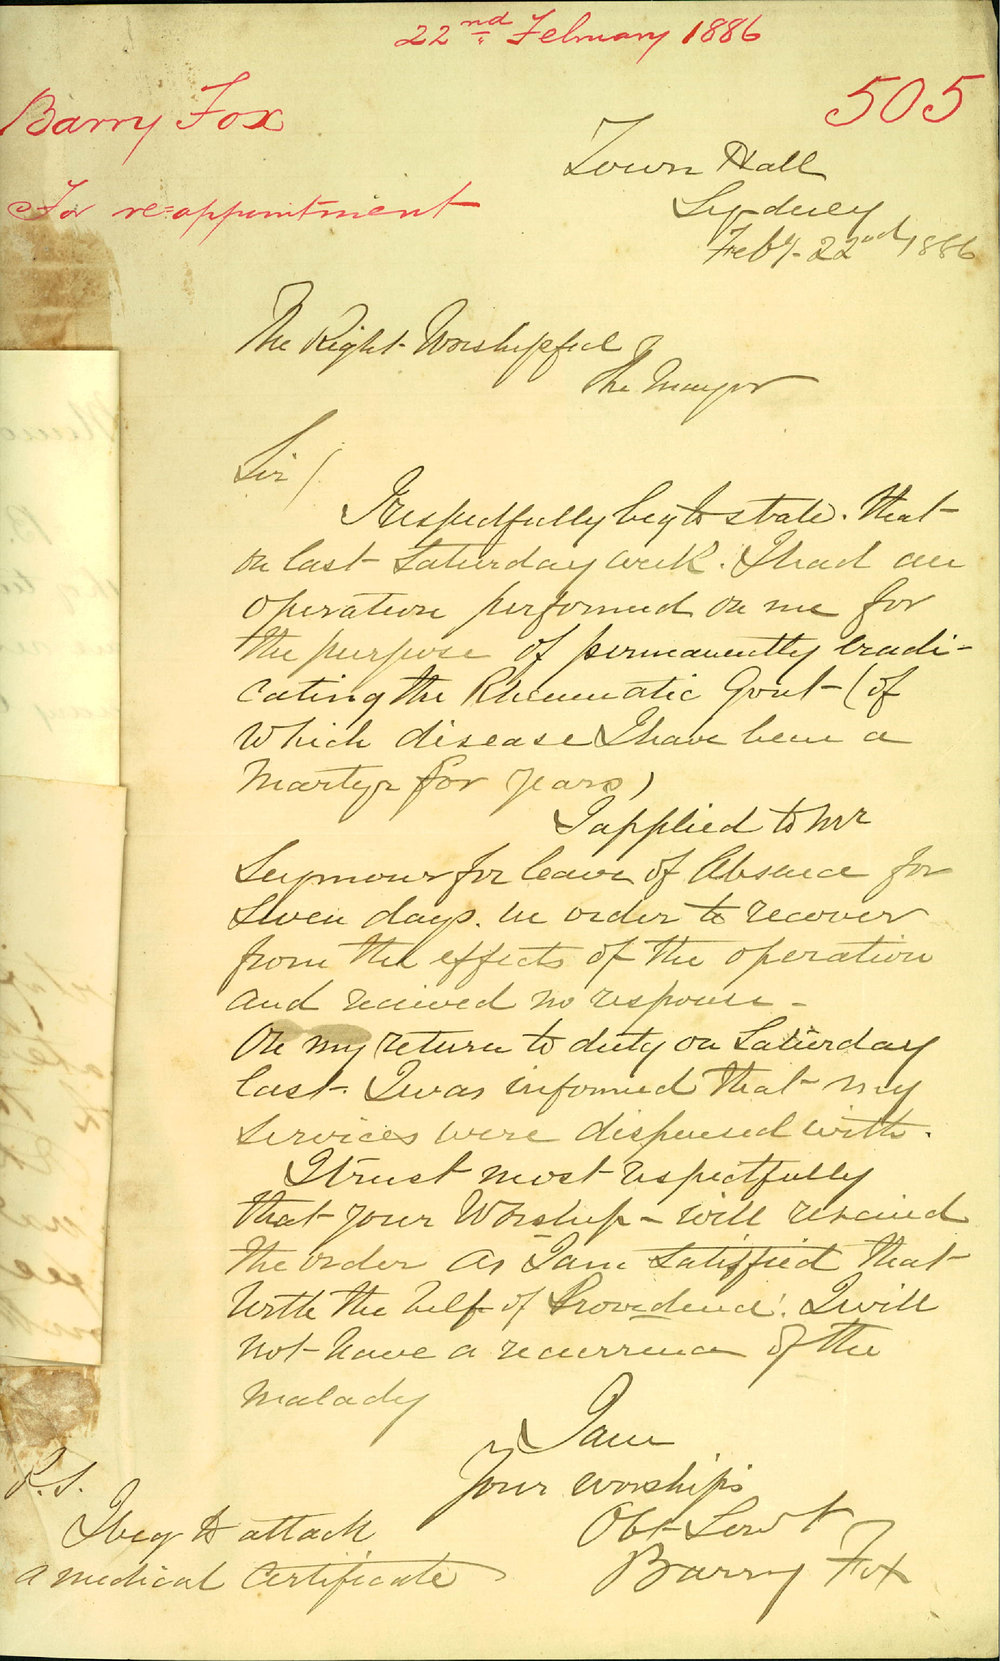 22nd February 1886
505
Barry Fox
For re=appointment
Town Hall
Sydney
Feby. 22nd, 1886
The Right Worshipful
The Mayor
Sir/
I respectfully beg to state. that
on last Saturday week. I had an
operation performed on me for
the purpose of permanently eradi-
cating the Rheumatic Gout (of
which disease I have been a
Martyr for years)
I applied to Mr
Seymour for leave of Absence for
seven days. in order to recover
from the effects of the operation
and received no response -
On my return to duty on Saturday
last. I was informed that my
services were dispensed with.
I trust most respectfully
that your Worship - will rescind
the order as I am satisfied that
with the help of Providence. I will
not have a recurrence of the
malady
I am
Your worships
Obt Servt
Barry Fox
P.S.
I beg to attach
a medical certificate